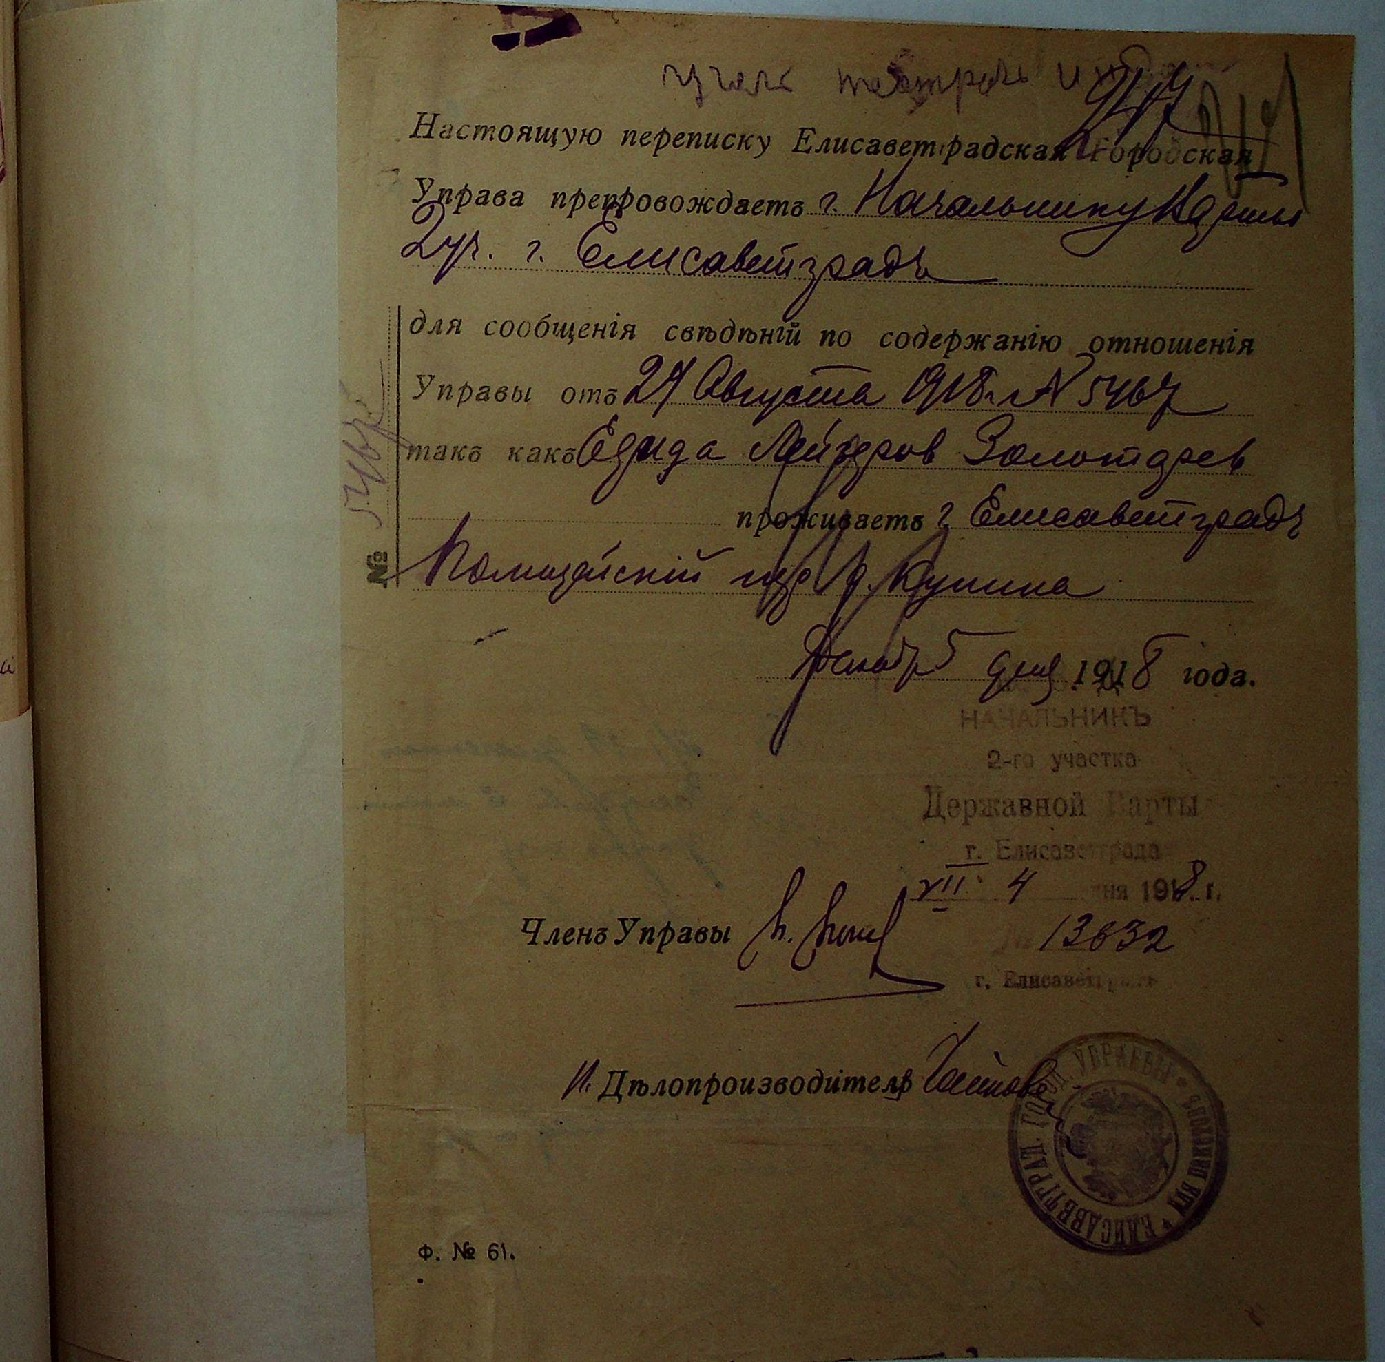 Настоящую переписку Елисаветградская Городская
Управа препровождаетъ г. Начальнику Варты
2 уч. г. Елисаветградъ
для сообщенія свѣдѣній по содержанію отношенія
Управы отъ 27 Августа 1918 г. № 5467
такъ какъ Лейзеров Золотарев
проживаетъ г. Елисаветградъ
Полицейскій пер. д. Кунина
№ 5467
5 дня 1918 года.
НАЧАЛЬНИКЪ
2-го участка
Державной Варты
г. Елисаветграда
VII 4 дня 1918 г.
13632
г. Елисаветградъ
Членъ Управы
И. Дѣлопроизводитель
ЕЛИСАВЕТГРАД. ГОРОД. УПРАВЫ
Ф. № 61.